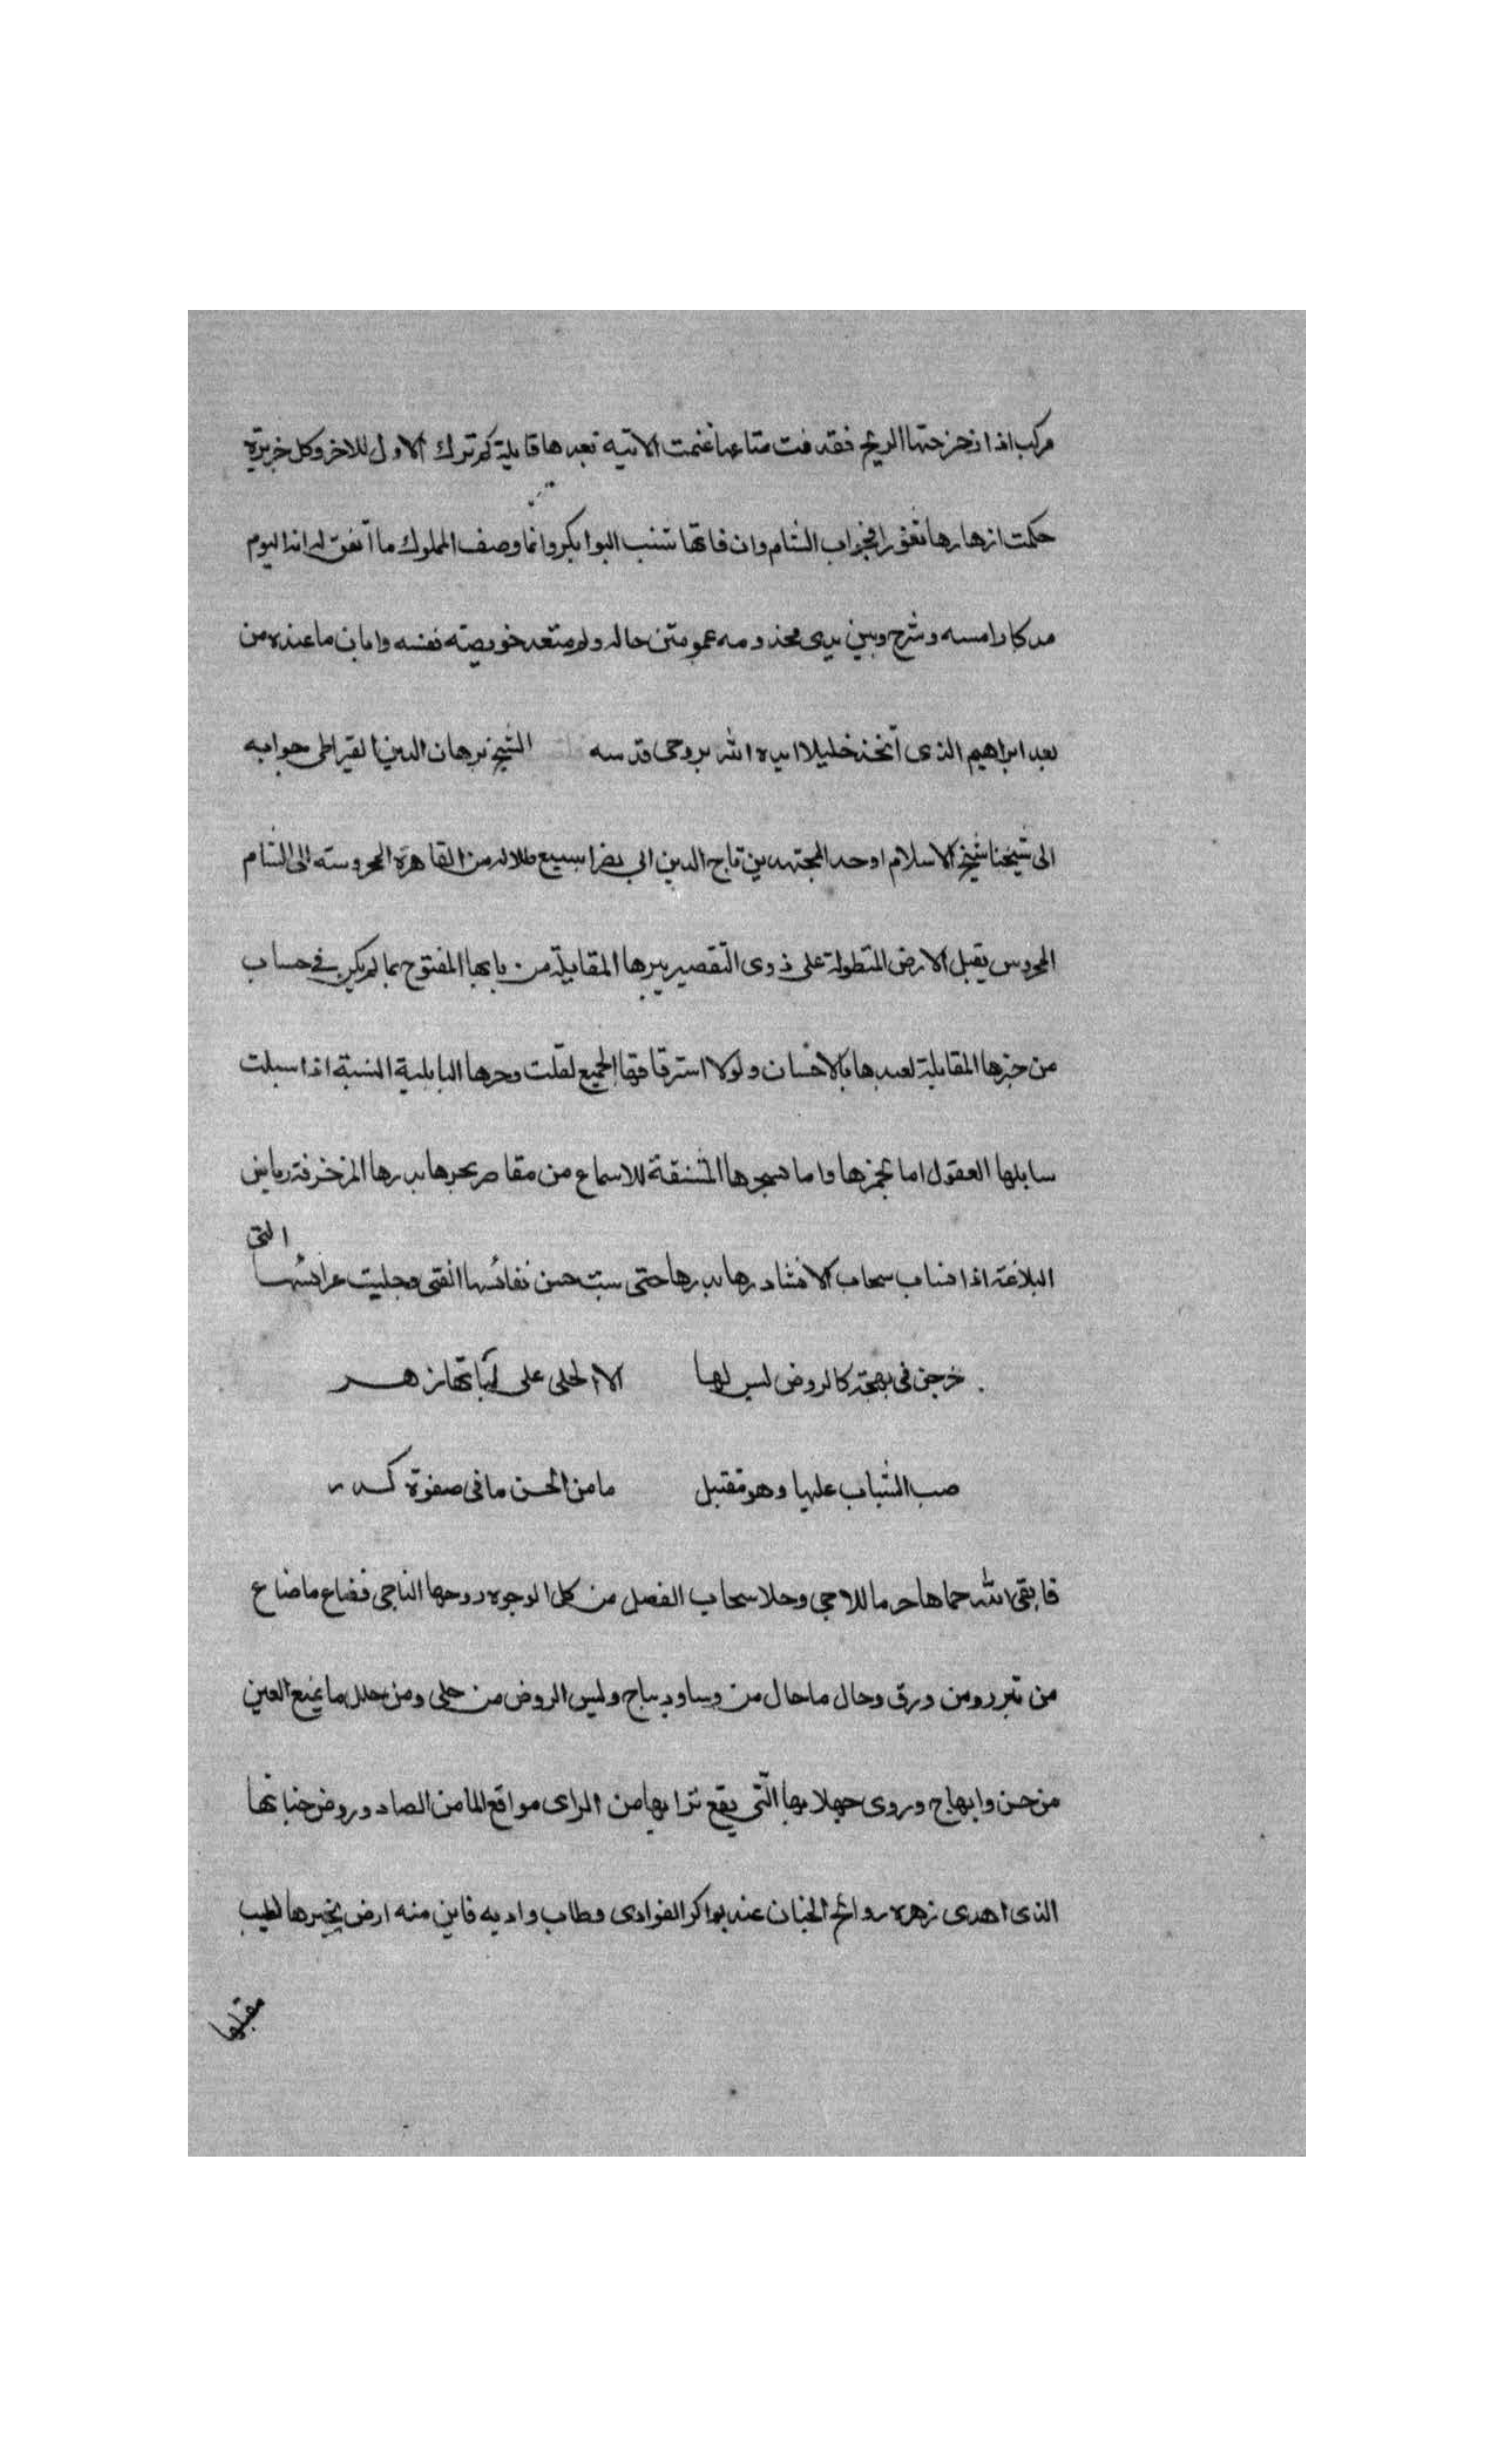 مركب اذا زحزحتها الريح فقد فت متاعها غنمت الاتيه بعدها قايلة كم ترك الاول للاخر وكل خريدة
حكمت ازهارها تغور الجواب الشام وان فاتها شنب البوابكر وانما وصف المملوك ما اتفق له اذ اليوم
مدكارا امسه وشرح وبين يدى مخدومه عمو متن حاله ولم يتعد خويصته نفسه وابان ما عنده من
بعد ابراهيم الذى اتخذ خليلا ايده الله بروحى قدسه الشيخ برهان الدين القيراطى جوابه
الى شيخنا شيخ الاسلام اوحد المجتهدين تاج الدين ابى نصر اسبغ ظلاله من القاهرة المحروسته الى الشام
المحروس يقبل الارض المتطولة على ذوى التقصير ببرها المقابلة من بابها المفتوح بما لم يكن فى حساب
من خبرها المقابلة لعبدها بالاحسان ولولا استرقاقها الجميع لقلت وحرها البابلية النسبة اذا سبلت
سابلها العقول اما بخمرها واما بسحرها المشنفة للاسماع من مقاصر بحرها بدرها المزخرفة رياض
البلاغة اذا انساب سحاب الانشاد رها بدرها حتى سبت حسن نفائسها انقى وجليت عرائسها التى
خرجن فى بهجة كالروض ليس لها الا الحلى على لباتها زهر
صب الشباب عليها وهو مقتبل ما من الحسن ما فى صفوة كدر
فابقى الله حماها حرما للاجى وحلا سحاب الفصل من كل الوجوه روحها الناجى فضاع ما ضاع
من تبر ومن ورق وحال ما حال من وساو ديباج ولبس الروض من حلى ومن حلل ما يمنع العين
من حسن وابهاج وروى جهلا بها التى يقع ترابها من الراى مواقع الما من الصاد وروض جنباتها
الذى اهدى زهره روائح الجنان عند بواكر الفوادى وطاب واديه فاين منه ارض يخبرها لطيب
مقبلها